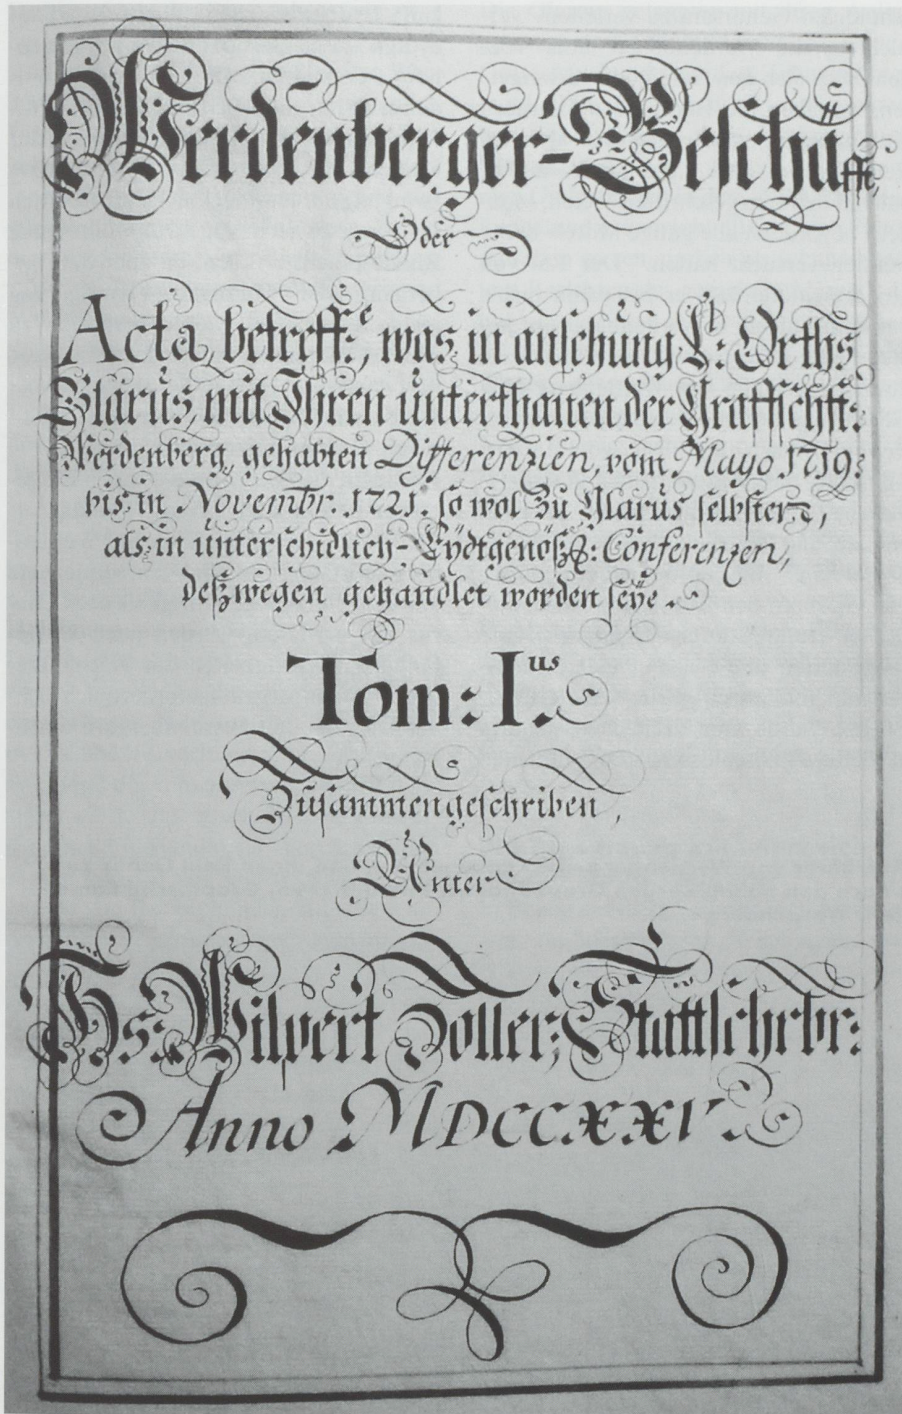 Werdenberger-Geschäfft,
Oder
Acta, betreff:e, was in ansehung L: Orths
Glarus, mit Ihren unterthanen der Graffschfft:
Werdenberg, gehabten Differenzien, vom Mayo 1719:
bis in Novembr. 1721. so wol zu Glarus selbsten,
als in unterschidlich- Eydtgenöß: Conferenzen,
deßwegen gehandlet worden seÿe.
Tom: I.us
Zusammengeschriben,
Unter
Hs: Wilpert Zoller, Stattschrbr:
Anno MDCCXXV.